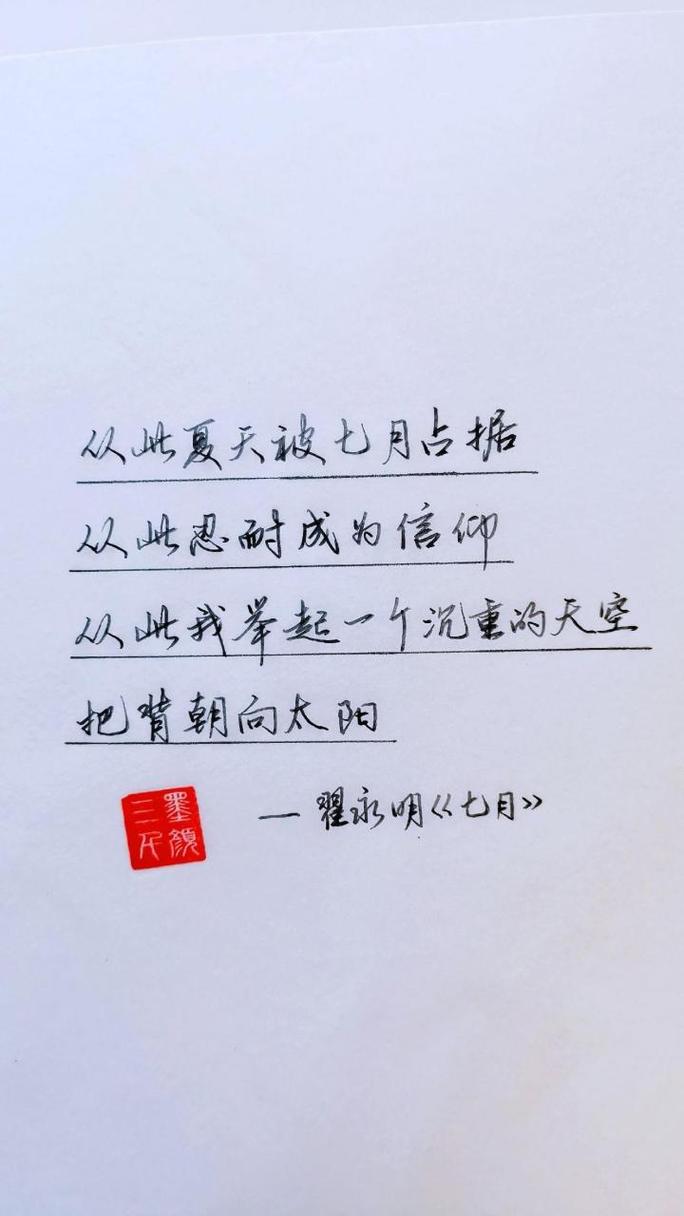 从此夏天被七月占据
从此忍耐成为信仰
从此我举起一个沉重的天空
把背朝向太阳
— 翟永明《七月》
墨颜
三斤